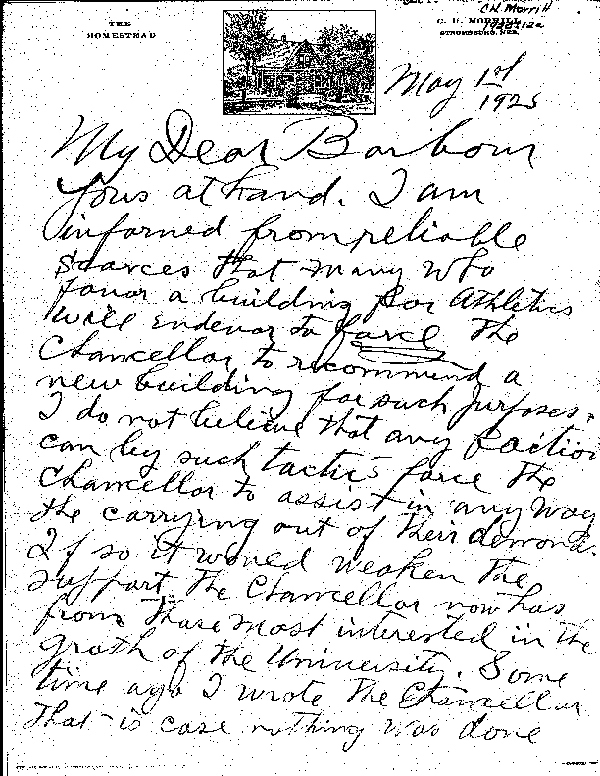 THE
HOMESTEAD
C.H. Morrill
C. H. MORRILL
STROMSBURG, NEB.
May 1st
1925
My Dear Barbour
Yours at hand. I am
informed from reliable
sources that many who
favor a building for Athletics
will endevor to force the
Chancellor to recommend a
new building for such purposes.
I do not believe that any faction
can by such tactics force the
Chancellor to assist in any way
the carrying out of their demands.
If so it would weaken the
support the Chancellor now has
from those most interested in the
groth of the University. Some
time ago I wrote the Chancellor
that is case nothing was done